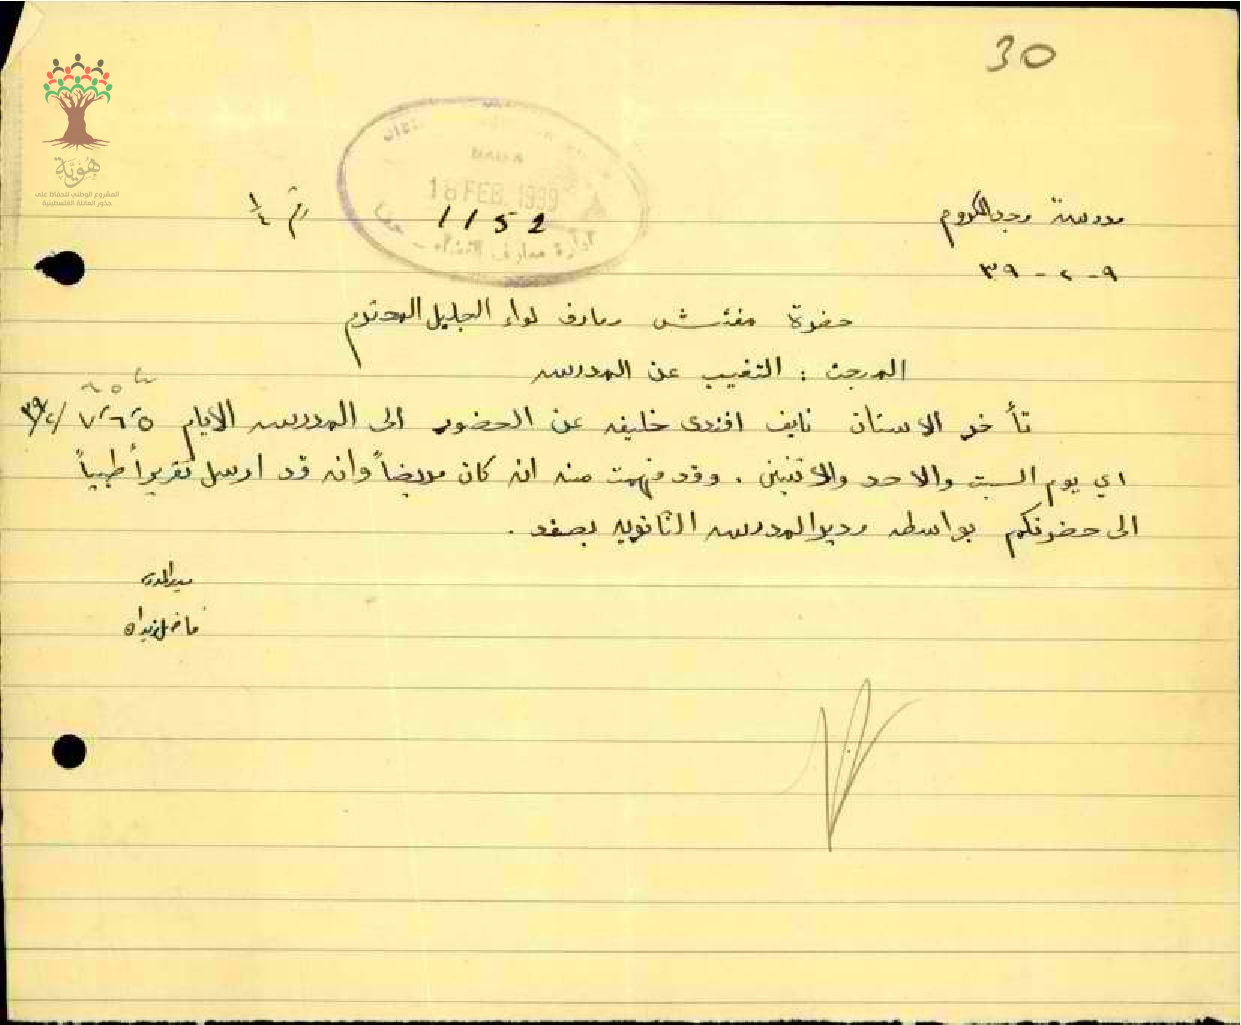 30
هوية
المشروع الوطني للحفاظ على
جذور العائلة الفلسطينية
18 FEB. 1939
1152
إدارة معارف القضاء - حيفا
مدرسة مجد الكروم
رقم ١/٤
٩ - ٢ - ٣٩
حضرة مفتش معارف لواء الجليل المحترم
المبحث : التغيب عن المدرسه
تأخر الاستاذ نايف افندي خليفه عن الحضور الى المدرسه الايام ٥ و ٦ و ٧ /٢/ ٣٩
اي يوم السبت والاحد والاثنين . وقد فهمت منه انه كان مريضاً وانه قد ارسل تقريراً طبياً
الى حضرتكم بواسطه مدير المدرسه الثانويه بصفد .
مدير المدرسة
فاضل زيدان